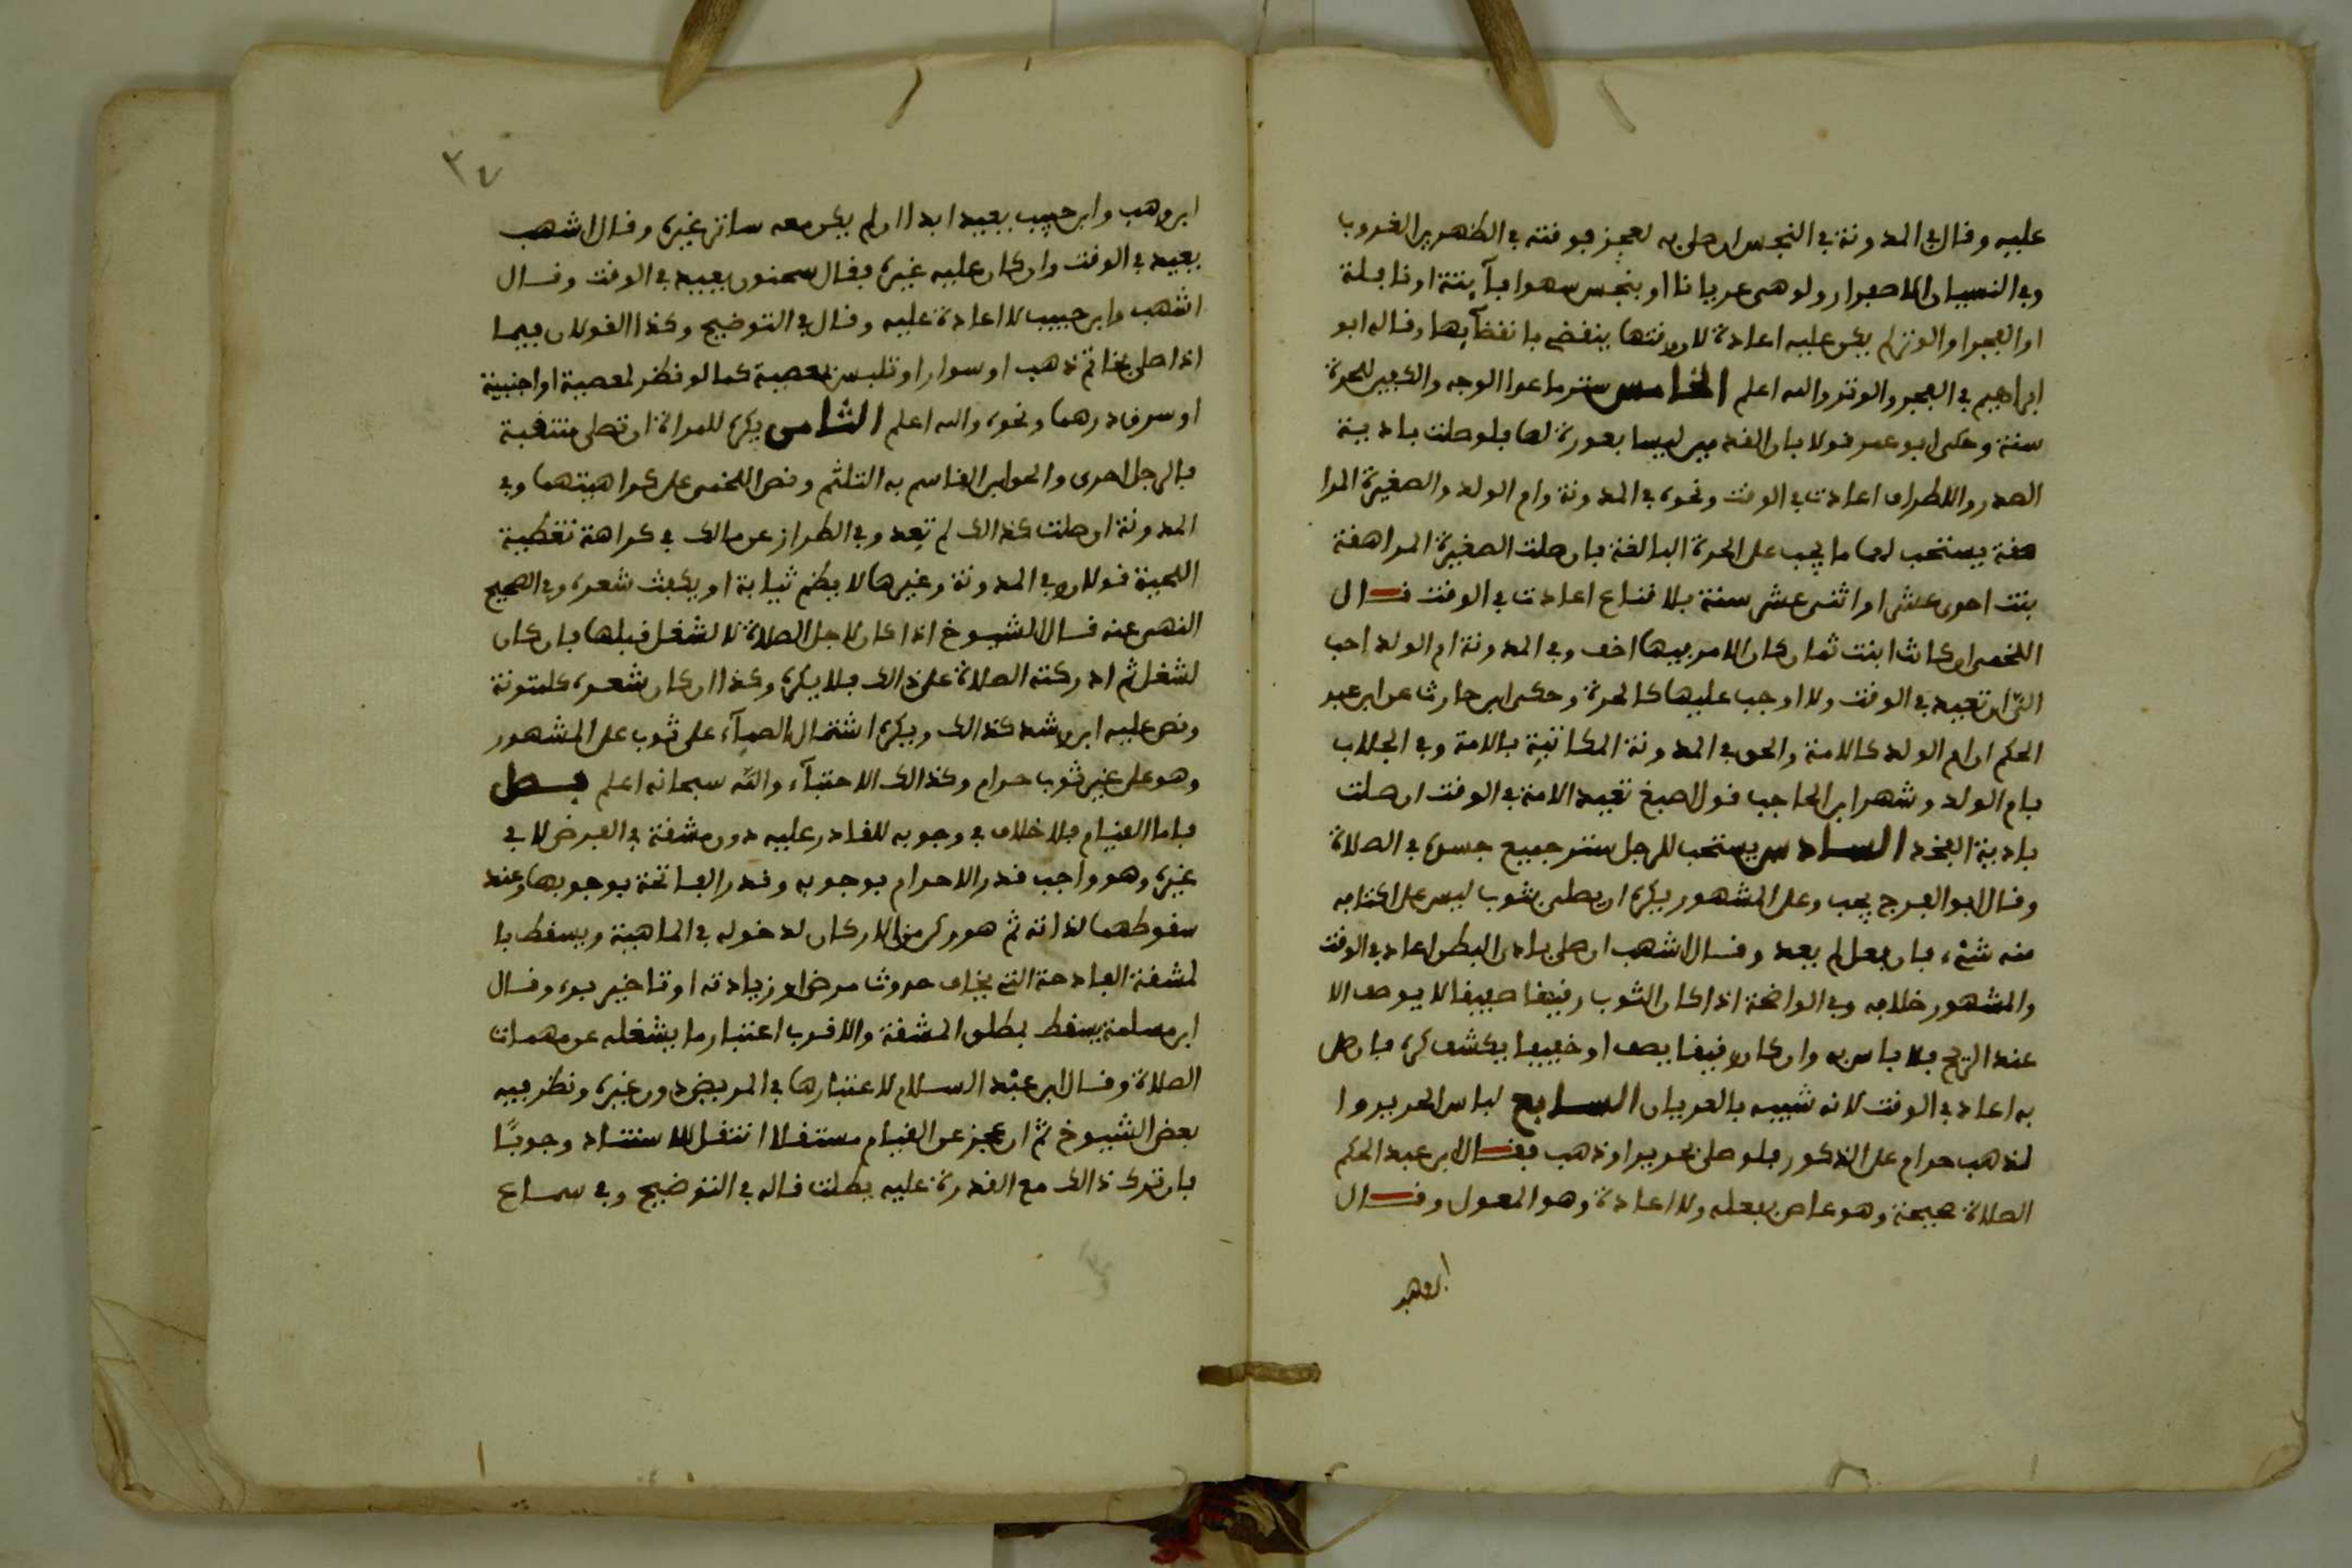 عليه وقال في المدونة في النجس ان صلى به لعجز فوقته في الظهرين الغروب
وفي النسيان الاصفرار ولو هى عريانا او بنجس سهوا فآيتة او نافلة
او الفجر او الوتر لم يكن عليه اعادة لان وقتها ينقضي بانقضآيها وقاله ابو
ابراهيم في الفجر والوتر والله اعلم الخامس ستر ما عدا الوجه والكفين للحرة
سنة وحكى ابو عمر قولا بان القدمين ليسا بعورة لها فلو صلت بادية
الصدر والاطراف اعادت في الوقت ونحوه في المدونة وام الولد والصغيرة المرا
هقة يستحب لهما ما يجب على الحرة البالغة فان صلت الصغيرة المراهقة
بنت احدى عشر او اثنى عشر سنة بلا قناع اعادت في الوقت قال
اللخمى ان كانت ابنت ثمان كان الامر فيها اخف وفي المدونة ام الولد احب
الىّ ان تعيد في الوقت ولا اوجب عليها كالحرة وحكى ابن حارث عن ابن عبد
الحكم ان ام الولد كالامة والحق في المدونة المكاتبة بالامة وفي الجلاب
بام الولد وشهر ابن الحاجب قول اصبغ تعيد الامة في الوقت ان صلت
بادية الفخذ السادس يستحب للرجل ستر جميع جسده في الصلاة
وقال ابو الفرج يجب وعلى المشهور يكره ان يصلى بثوب ليس على اكتافه
منه شىء فان فعل لم يعد وقال اشهب ان صلى بادى البطن اعاد في الوقت
والمشهور خلافه وفي الواضحة اذا كان الثوب رقيقا صفيفا لا يوصف الا
عند الريح فلا باس به وان كان رقيقا يصف او خفيفا يكشف كره فان صلى
به اعاد في الوقت لانه شبيه بالعريان السابع لباس الحرير وا
لذهب حرام على الذكور فلو صلى بحرير او ذهب فقال ابن عبد الحكم
الصلاة صحيحة وهو عاص بفعله ولا اعادة وهو المعول وقال
ابن وهب
٣٤
ابن وهب وابن حبيب يعيد ابدا ان لم يكن معه ساتر غيره وقال اشهب
يعيد في الوقت وان كان عليه غيره فقال سحنون يعيد في الوقت وقال
اشهب وابن حبيب لا اعادة عليه وقال في التوضيح وكذا القولان فيما
اذا صلى بخاتم ذهب او سوار او تلبس بمعصية كما لو نظر لمعصية او اجنبية
او سرق درهما ونحوه والله اعلم الثامن يكره للمراة ان تصلى منتقبة
فالرجل احرى والحق ابن القاسم به التلثم ونص اللخمى على كراهيتهما وفي
المدونة ان صلت كذالك لم تعد وفي الطراز عن مالك في كراهة تغطية
اللحية قولان وفي المدونة وغيرها لا يضم ثيابة او يكفت شعره وفي الصحيح
النهى عنه قال الشيوخ اذا كان لاجل الصلاة لا لشغل قبلها فان كان
لشغل ثم ادركته الصلاة على ذالك فلا يكره وكذا ان كان شعره كلمتونة
ونص عليه ابن رشد كذالك ويكره اشتمال الصمآء على ثوب على المشهور
وهو على غير ثوب حرام وكذالك الاحتبآء والله سبحانه اعلم فصل
فاما القيام فلا خلاف في وجوبه للقادر عليه دون مشقة في الفرض لا في
غيره وهو واجب قدر الاحرام بوجوبه وقدر الفاتحة بوجوبها وعند
سقوطهما لذاته ثم هو ركن من الاركان لدخوله في الماهية ويسقط با
لمشقة الفادحة التى يخاف حدوث مرض او زيادته او تاخير برء وقال
ابن مسلمة يسقط بمطلق المشقة والاقرب اعتبار ما يشغله عن مهمات
الصلاة وقال ابن عبد السلام لا عتبارها في المريض دون غيره ونظر فيه
بعض الشيوخ ثم ان عجز عن القيام مستقلا انتقل للاستناد وجوبًا
فان ترك ذالك مع القدرة عليه بطلت قاله في التوضيح وفي سماع